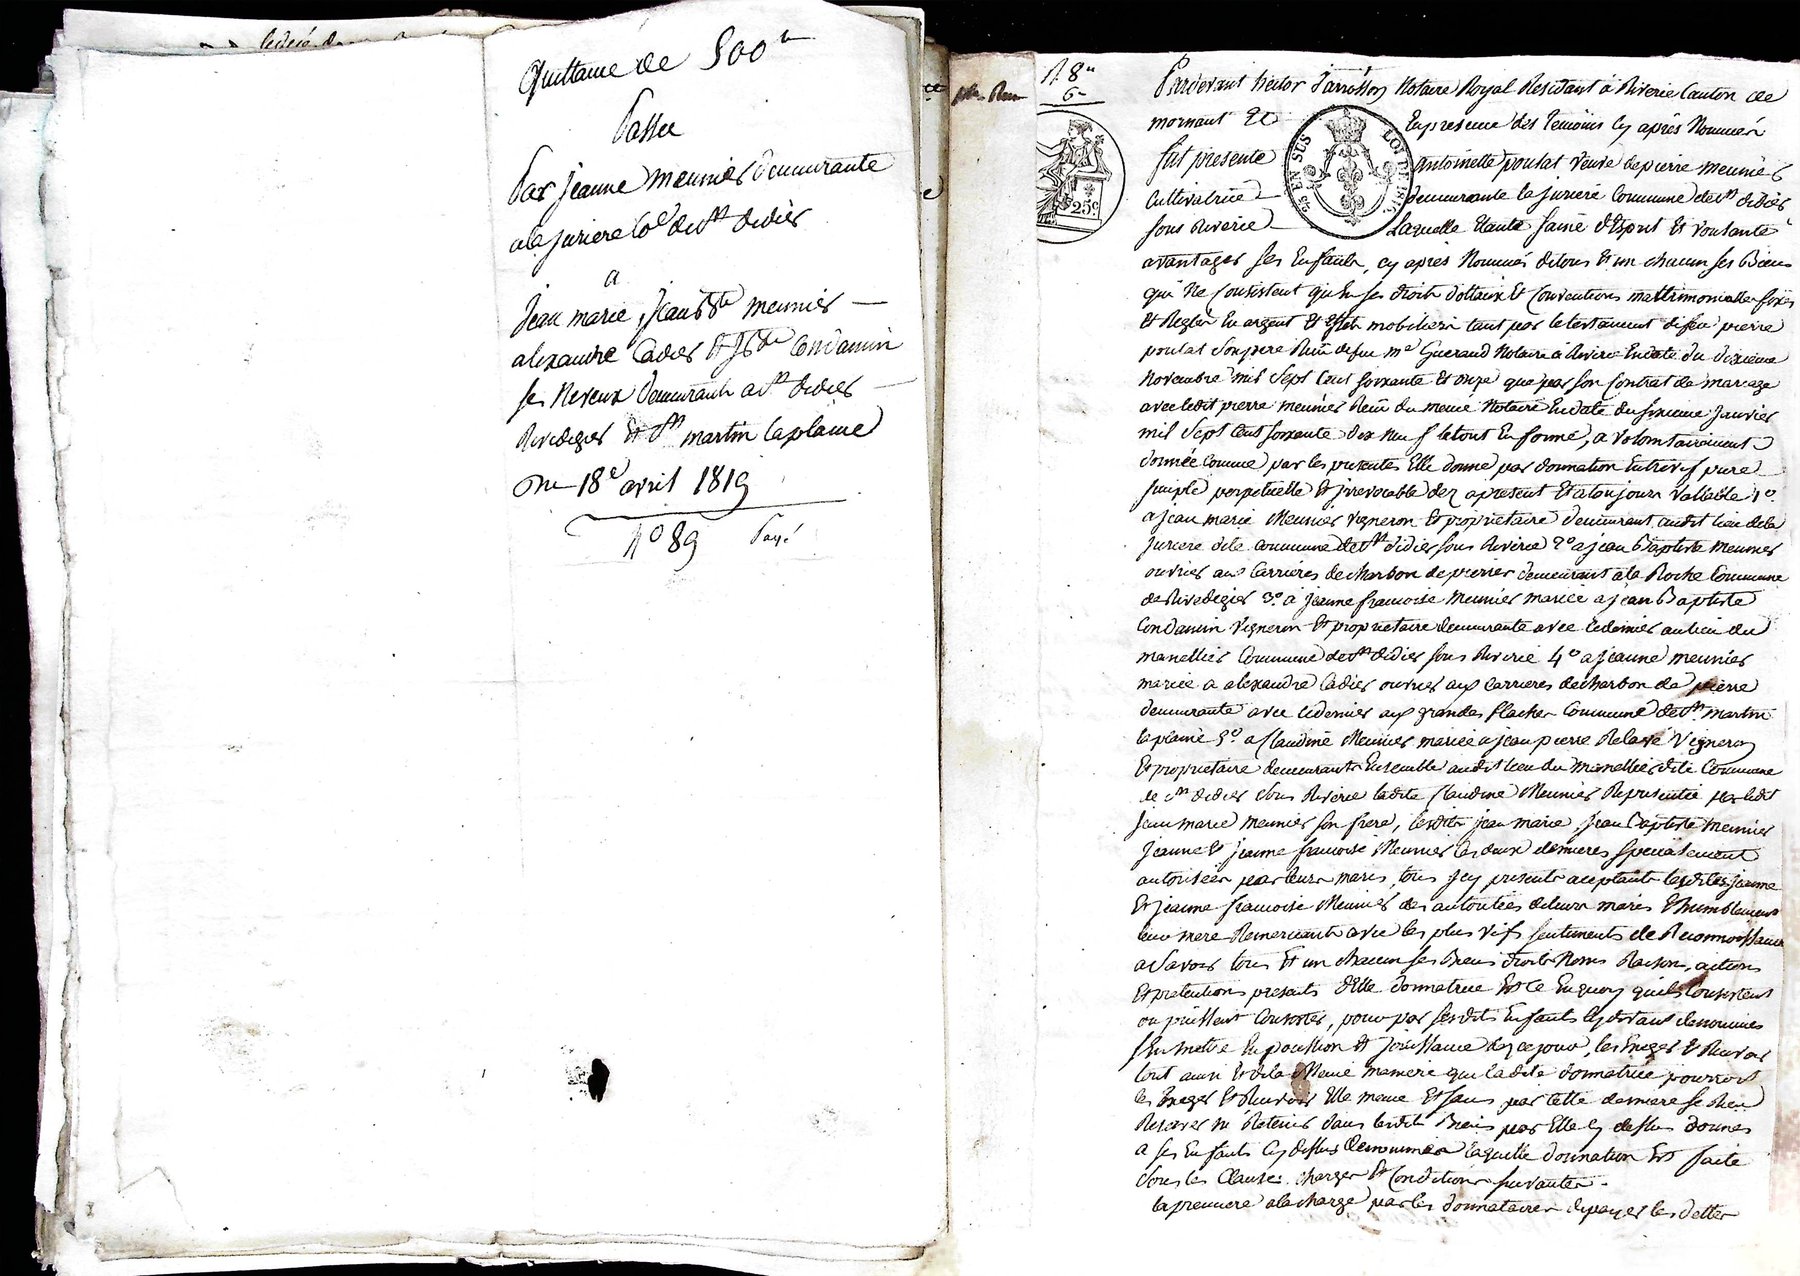 Quittance de 500 tt
Passée
Par jeanne meunier demeurante
a la juriere Co^e de S^t didier
a
jean marie, jean B^te meunier —
alexandre Cadier Et J B^te Condamin
ses Neveux demeurants a S^t didier —
Rivedegier Et S^t martin laplaine
Du 18^e avril 1819
N° 89 Payé
N 8^u
6^u
25 EN SUS
LOI DE 1816
25^c
Pardevant hector Parrossoy Notaire Royal Residant à Riverie Canton de
mornant Et En presence des temoins Cy aprés Nommés
fut presente antoinette poulat veuve de pierre meunier
Cultivatrice — demeurante la jurieré Commune de S^t didier
sous Riverie — Laquelle Etante saine d'Esprit Et voulante
avantager ses Enfants, cy aprés Nommés de tous Et un chacun ses Biens
qui Ne Consistent qu'En ses droits dottaux Et Conventions mattrimonialles fixés
Et Reglés En argent Et Effets mobiliers tant par le testament de feu pierre
poulat son pere Reçu de feu m^e Gueraud Notaire à Riverie En date du dixieme
Novembre mil sept Cent soixante Et onze que par son Contrat de mariage
avec ledit pierre meunier Reçu du meme Notaire En date du sixieme janvier
mil sept Cent soixante dix neuf le tout En forme, a volontairement
donnée Comme par les presentes Elle donne par donnation Entrevifs pure
simple perpetuelle Et jrrevocable dez apresent Et a toujours vallable 1°
a jean marie Meunier vigneron Et proprietaire demeurant audit lieu de la
juriere dite commune de S^t didier sous Riverie 2° a jean Baptiste meunier
ouvrier aux Carrieres de charbon de pierres demeurant a la Roche Commune
de Rivedegier 3° a jeanne francoise Meunier mariée a jean Baptiste
Condamin vigneron Et proprietaire demeurante avec ce dernier au lieu du
manellier Commune de S^t didier sous Riverie 4° a jeanne meunier
mariée a alexandre Cadier ouvrier aux Carrieres de charbon de pierre
demeurante avec ce dernier aux grandes flaches Commune de S^t martin
la plaine 5° a Claudine Meunier mariée a jean pierre Relave vigneron
Et proprietaire demeurants Ensemble audit lieu du manellier dite Commune
de S^t didier sous Riverie ladite Claudine Meunier Representée par ledit
jean marie meunier son frere, lesdits jean marie, jean Baptiste Meunier
jeanne Et jeanne francoise Meunier les deux dernieres specialement
autorisées par leurs maris, tous jcy presents aceptants lesdites jeanne
Et jeanne francoise Meunier des autorités de leurs maris Et humblement
leur mere Remerciants avec les plus vifs sentiments de Reconnoissance
a savoir tous Et un chacun ses Biens droits Noms Raisons, actions
Et pretentions presents d'Elle donnatrice Est ce En quoy qu'ils Consistent
ou puissent Consister, pour par sesdits Enfants Cy devant denommés
s'En mettre En possession Et jouissance dez ce jour, les Exiger Et Recevoir
tout ainsi Et de la Meme maniere que ladite donnatrice pourroit
les Exiger Et Recevoir Elle meme Et sans par cette derniere se Rien
Reserver ni Retenir dans lesdits Biens par Elle Cy dessus donnés
a ses Enfants Cy dessus denommés laquelle donnation Est faite
sous les Clauses charges Et Conditions suivantes.
la premiere a la charge par les donnataires de payer les dettes